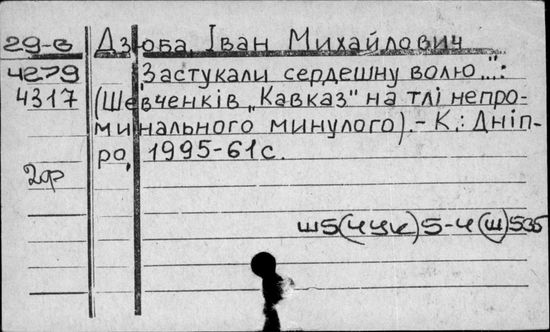 29-в Дзюба, Іван Михайлович
4279 "Застукали сердешну волю...":
4317 (Шевченків „Кавказ" на тлі непро-
минального минулого).- К.: Дніп-
ро, 1995-61с.
2др
ш5(4Укр)5-4(ш)535